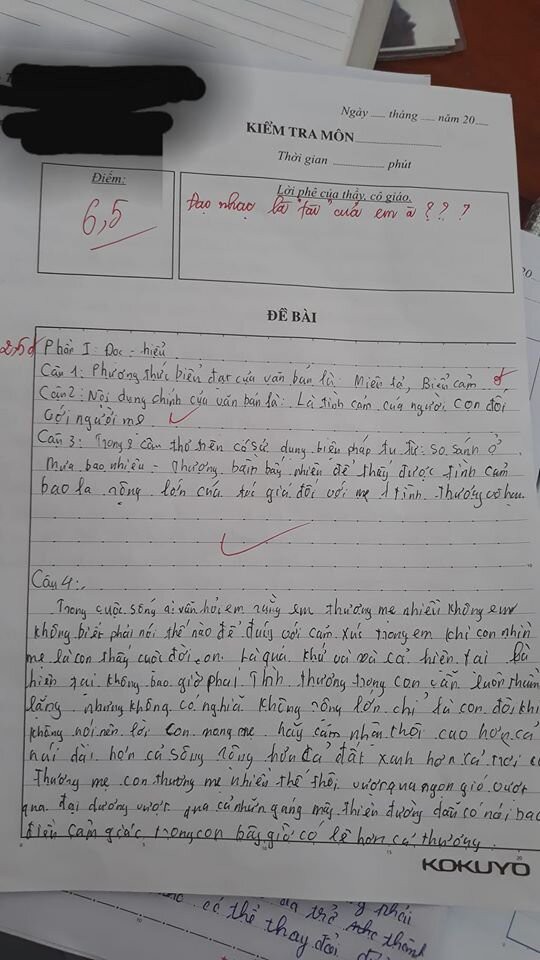 Ngày ___ tháng ___ năm 20___
KIỂM TRA MÔN
Thời gian ______ phút
Điểm:
6,5
Lời phê của thầy, cô giáo.
Đạo nhạc là "tài" của em à ? ? ?
ĐỀ BÀI
2,5đ
Phần I: Đọc - hiểu
Câu 1: Phương thức biểu đạt của văn bản là: Miêu tả, Biểu cảm
Câu 2: Nội dung chính của văn bản là: Là tình cảm của người con đối
với người mẹ
Câu 3: Trong 2 câu thơ trên có sử dụng biện pháp tu từ: so sánh ở
Mưa bao nhiêu - Thương bầm bấy nhiêu để thấy được tình cảm
bao la rộng lớn của tác giả đối với mẹ 1 tình thương vô hạn
Câu 4:
Trong cuộc sống ai vẫn hỏi em rằng em thương mẹ nhiều không em
không biết phải nói thế nào để đúng với cảm xúc trong em khi con nhìn
mẹ là con thấy cuộc đời con. Là quá khứ và và cả hiện tại là
hiện tại không bao giờ phai. Tình thương trong con vẫn luôn thầm
lặng nhưng không có nghĩa không rộng lớn chỉ là con đôi khi
không nói nên lời con mong mẹ hãy cảm nhận thôi cao hơn cả
núi dài hơn cả sông rộng hơn cả đất xanh hơn cả trời
Thương mẹ con thương mẹ nhiều thế thôi vượt qua ngọn gió vượt
qua đại dương vượt qua cả những gang mây thiên đường dẫu có nói bao
điều cảm giác trong con bây giờ có lẽ hơn cả thương.
KOKUYO
có thể thay đổi